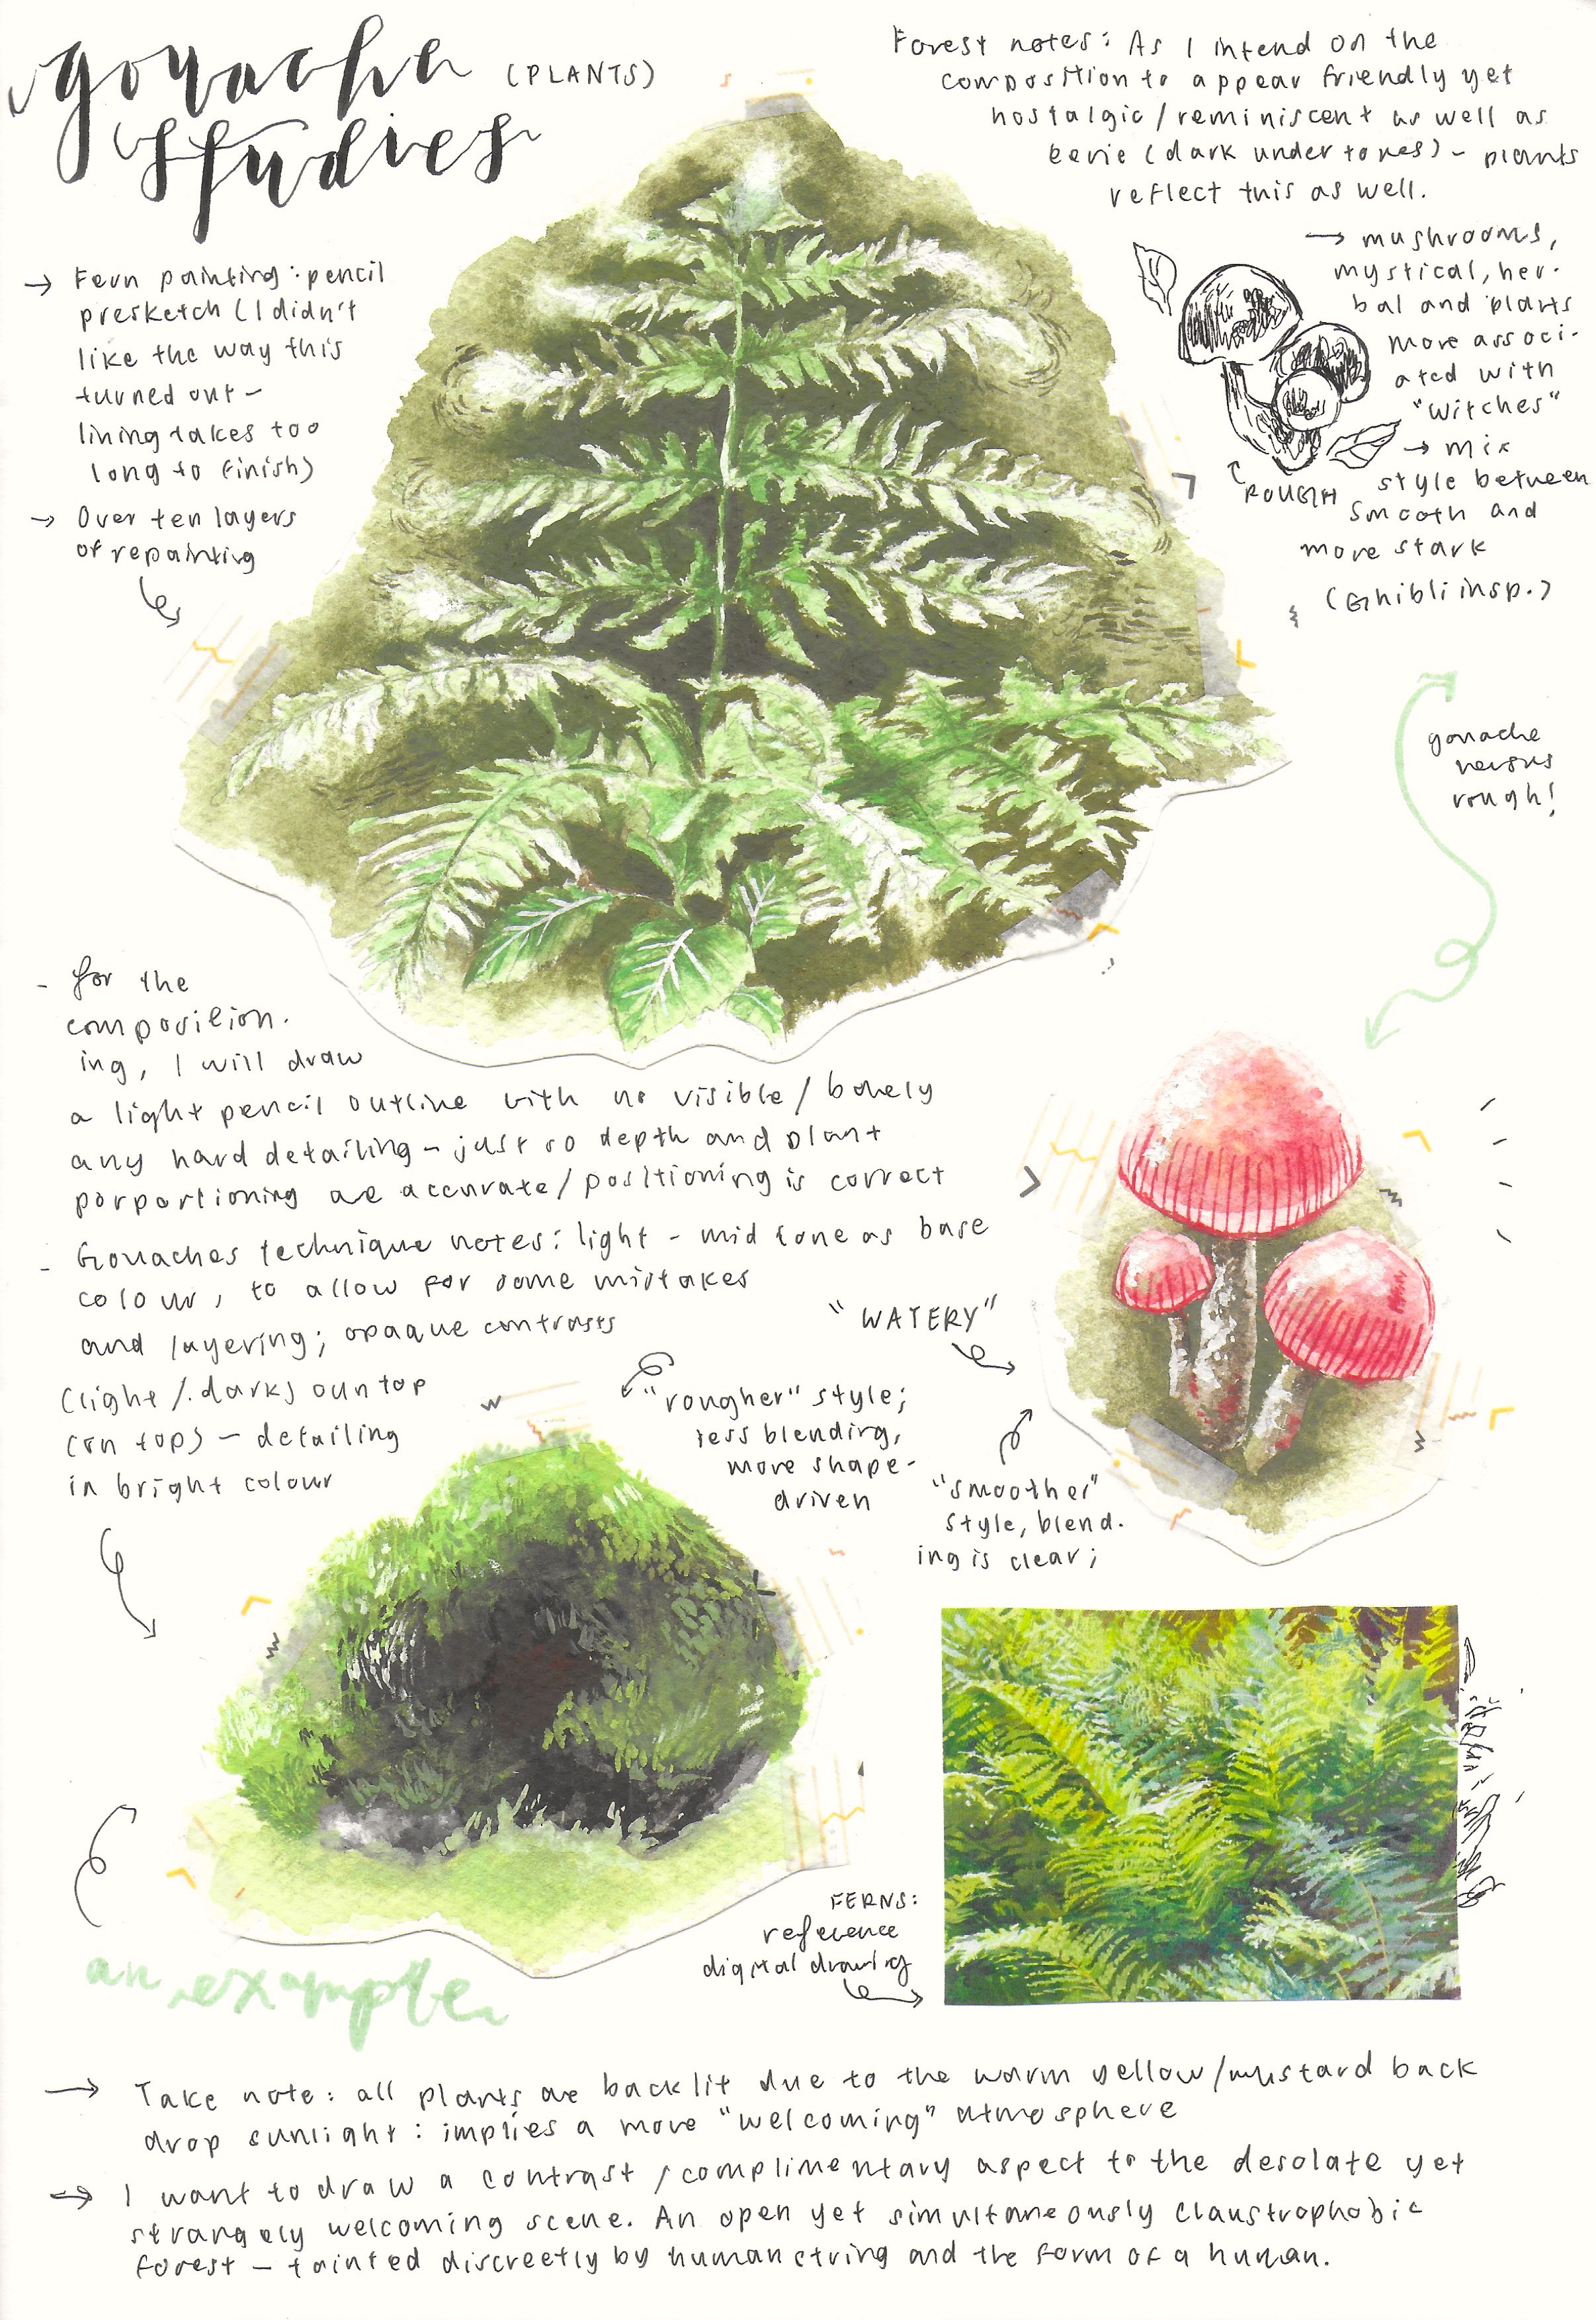 gouache (PLANTS)
studies
Forest notes: As I intend on the
composition to appear friendly yet
nostalgic/reminiscent as well as
eerie (dark undertones) - plants
reflect this as well.
→ mushrooms,
mystical, her-
bal and plants
more associ-
ated with
"witches"
→ mix
style between
smooth and
more stark
(Ghibli insp.)
ROUGH
→ Fern painting: pencil
presketch (I didn't
like the way this
turned out -
lining takes too
long to finish)
→ Over ten layers
of repainting
gouache
versus
rough!
- for the
composition.
ing, I will draw
a light pencil outline with no visible/barely
any hard detailing - just so depth and plant
porportioning are accurate/positioning is correct
- Gouaches technique notes: light - mid tone as base
colour, to allow for some mistakes
and layering; opaque contrasts
(light/dark) oun top
(on top) - detailing
in bright colour
"WATERY"
"rougher" style;
less blending,
more shape-
driven
"smoother"
style, blend.
ing is clear;
an example
FERNS:
reference
digital drawing
→ Take note: all plants are backlit due to the warm yellow/mustard back
drop sunlight: implies a more "welcoming" atmosphere
→ I want to draw a contrast/complimentary aspect to the desolate yet
strangely welcoming scene. An open yet simultaneously claustrophobic
forest - tainted discreetly by human string and the form of a human.